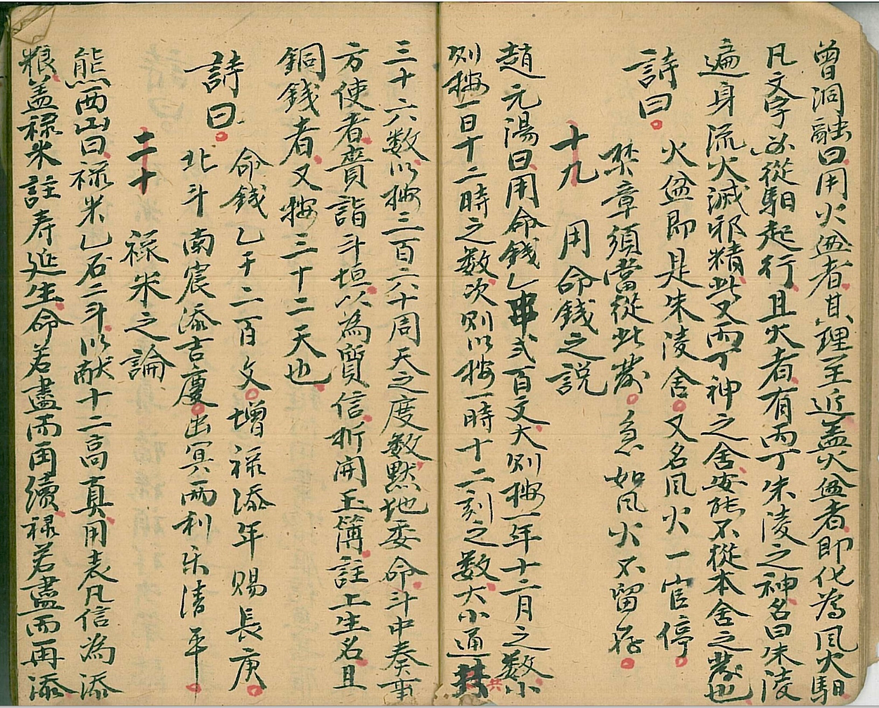 曾洞融曰用火盆者其理至近盖火盆者即化為風火馹
凡文字必從馹起行且火者有丙丁朱陵之神名曰朱陵
遍身流火滅邪精此又丙丁神之舍安能不從本舍之發也
火盆即是朱陵舍又名風火一官停
詩曰
禁章須當從此發急如風火不留存
十九 用命錢之説
趙元陽曰用命錢乙串弍百文大則按一年十二月之數小
則按一日十二時之数次則以按一時十二刻之数大小通共
三十六数以按三百六十周天之度数黙地委命斗中奏事
方使者賫詣斗垣以為質信折開玉簿註上生名且
銅錢者又按三十二天也
命錢乙千二百文增禄添年賜長庚
詩曰
北斗南宸添吉慶出冥兩利乐清平
二十 禄米之論
熊西山曰禄米乙石二斗以献十二高真用表凡信為添
粮盖禄米註寿延生命若盡而再續禄若盡而再添